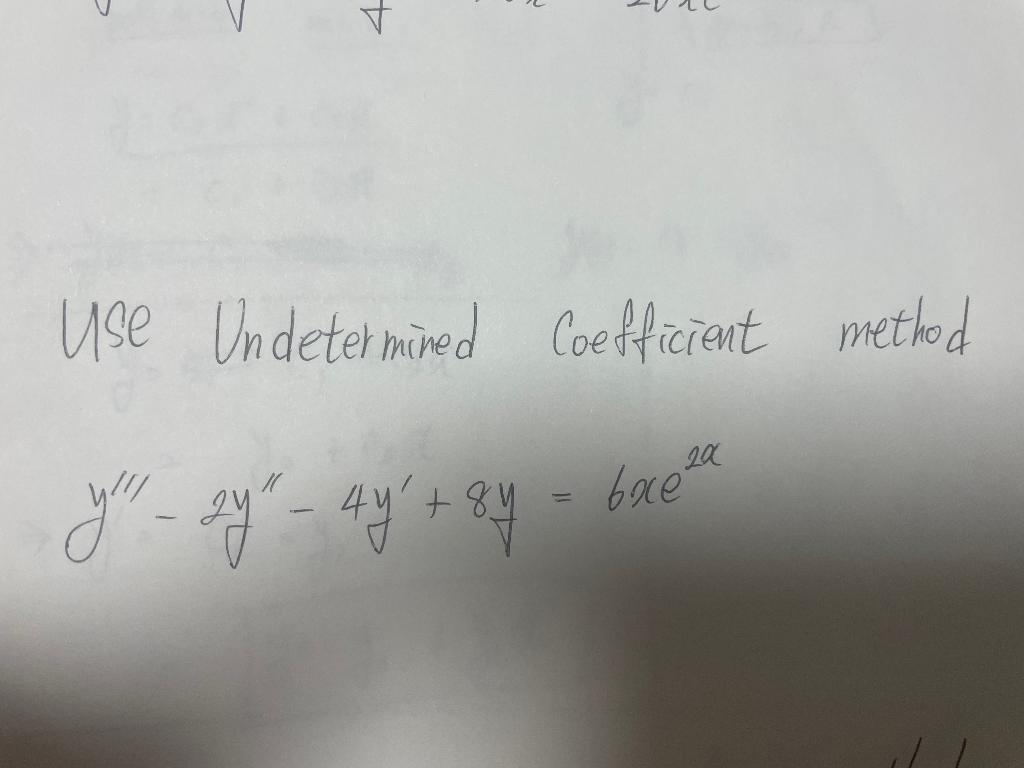 Use Undetermined Coefficient method
y''' - 2y'' - 4y' + 8y = 6xe^{2x}